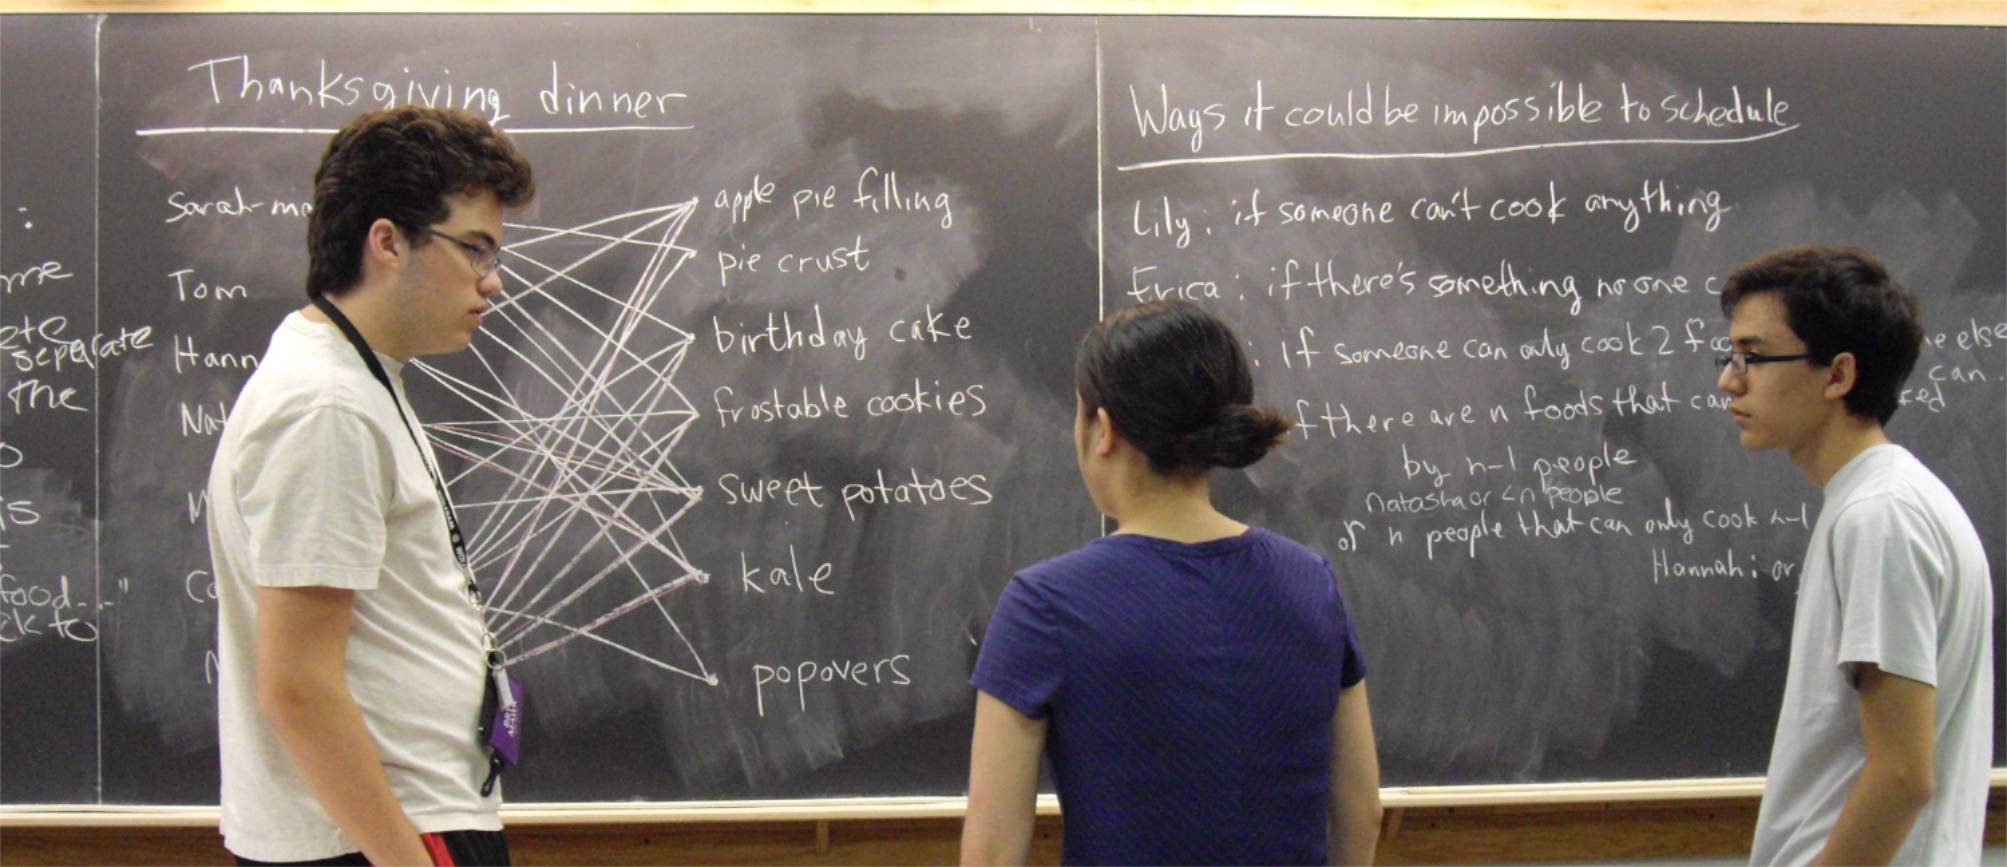 Thanksgiving dinner
Sarah-ma
Tom
Hann
Nat
apple pie filling
pie crust
birthday cake
frostable cookies
sweet potatoes
kale
popovers
Ways it could be impossible to schedule
Lily: if someone can't cook anything
Erica: if there's something no one c
: if someone can only cook 2 foo e else
can.
f there are n foods that can red
by n-1 people
Natasha or <n people
or n people that can only cook n-1
Hannah: or
me
ete
separate
the
is
food..."
ck to